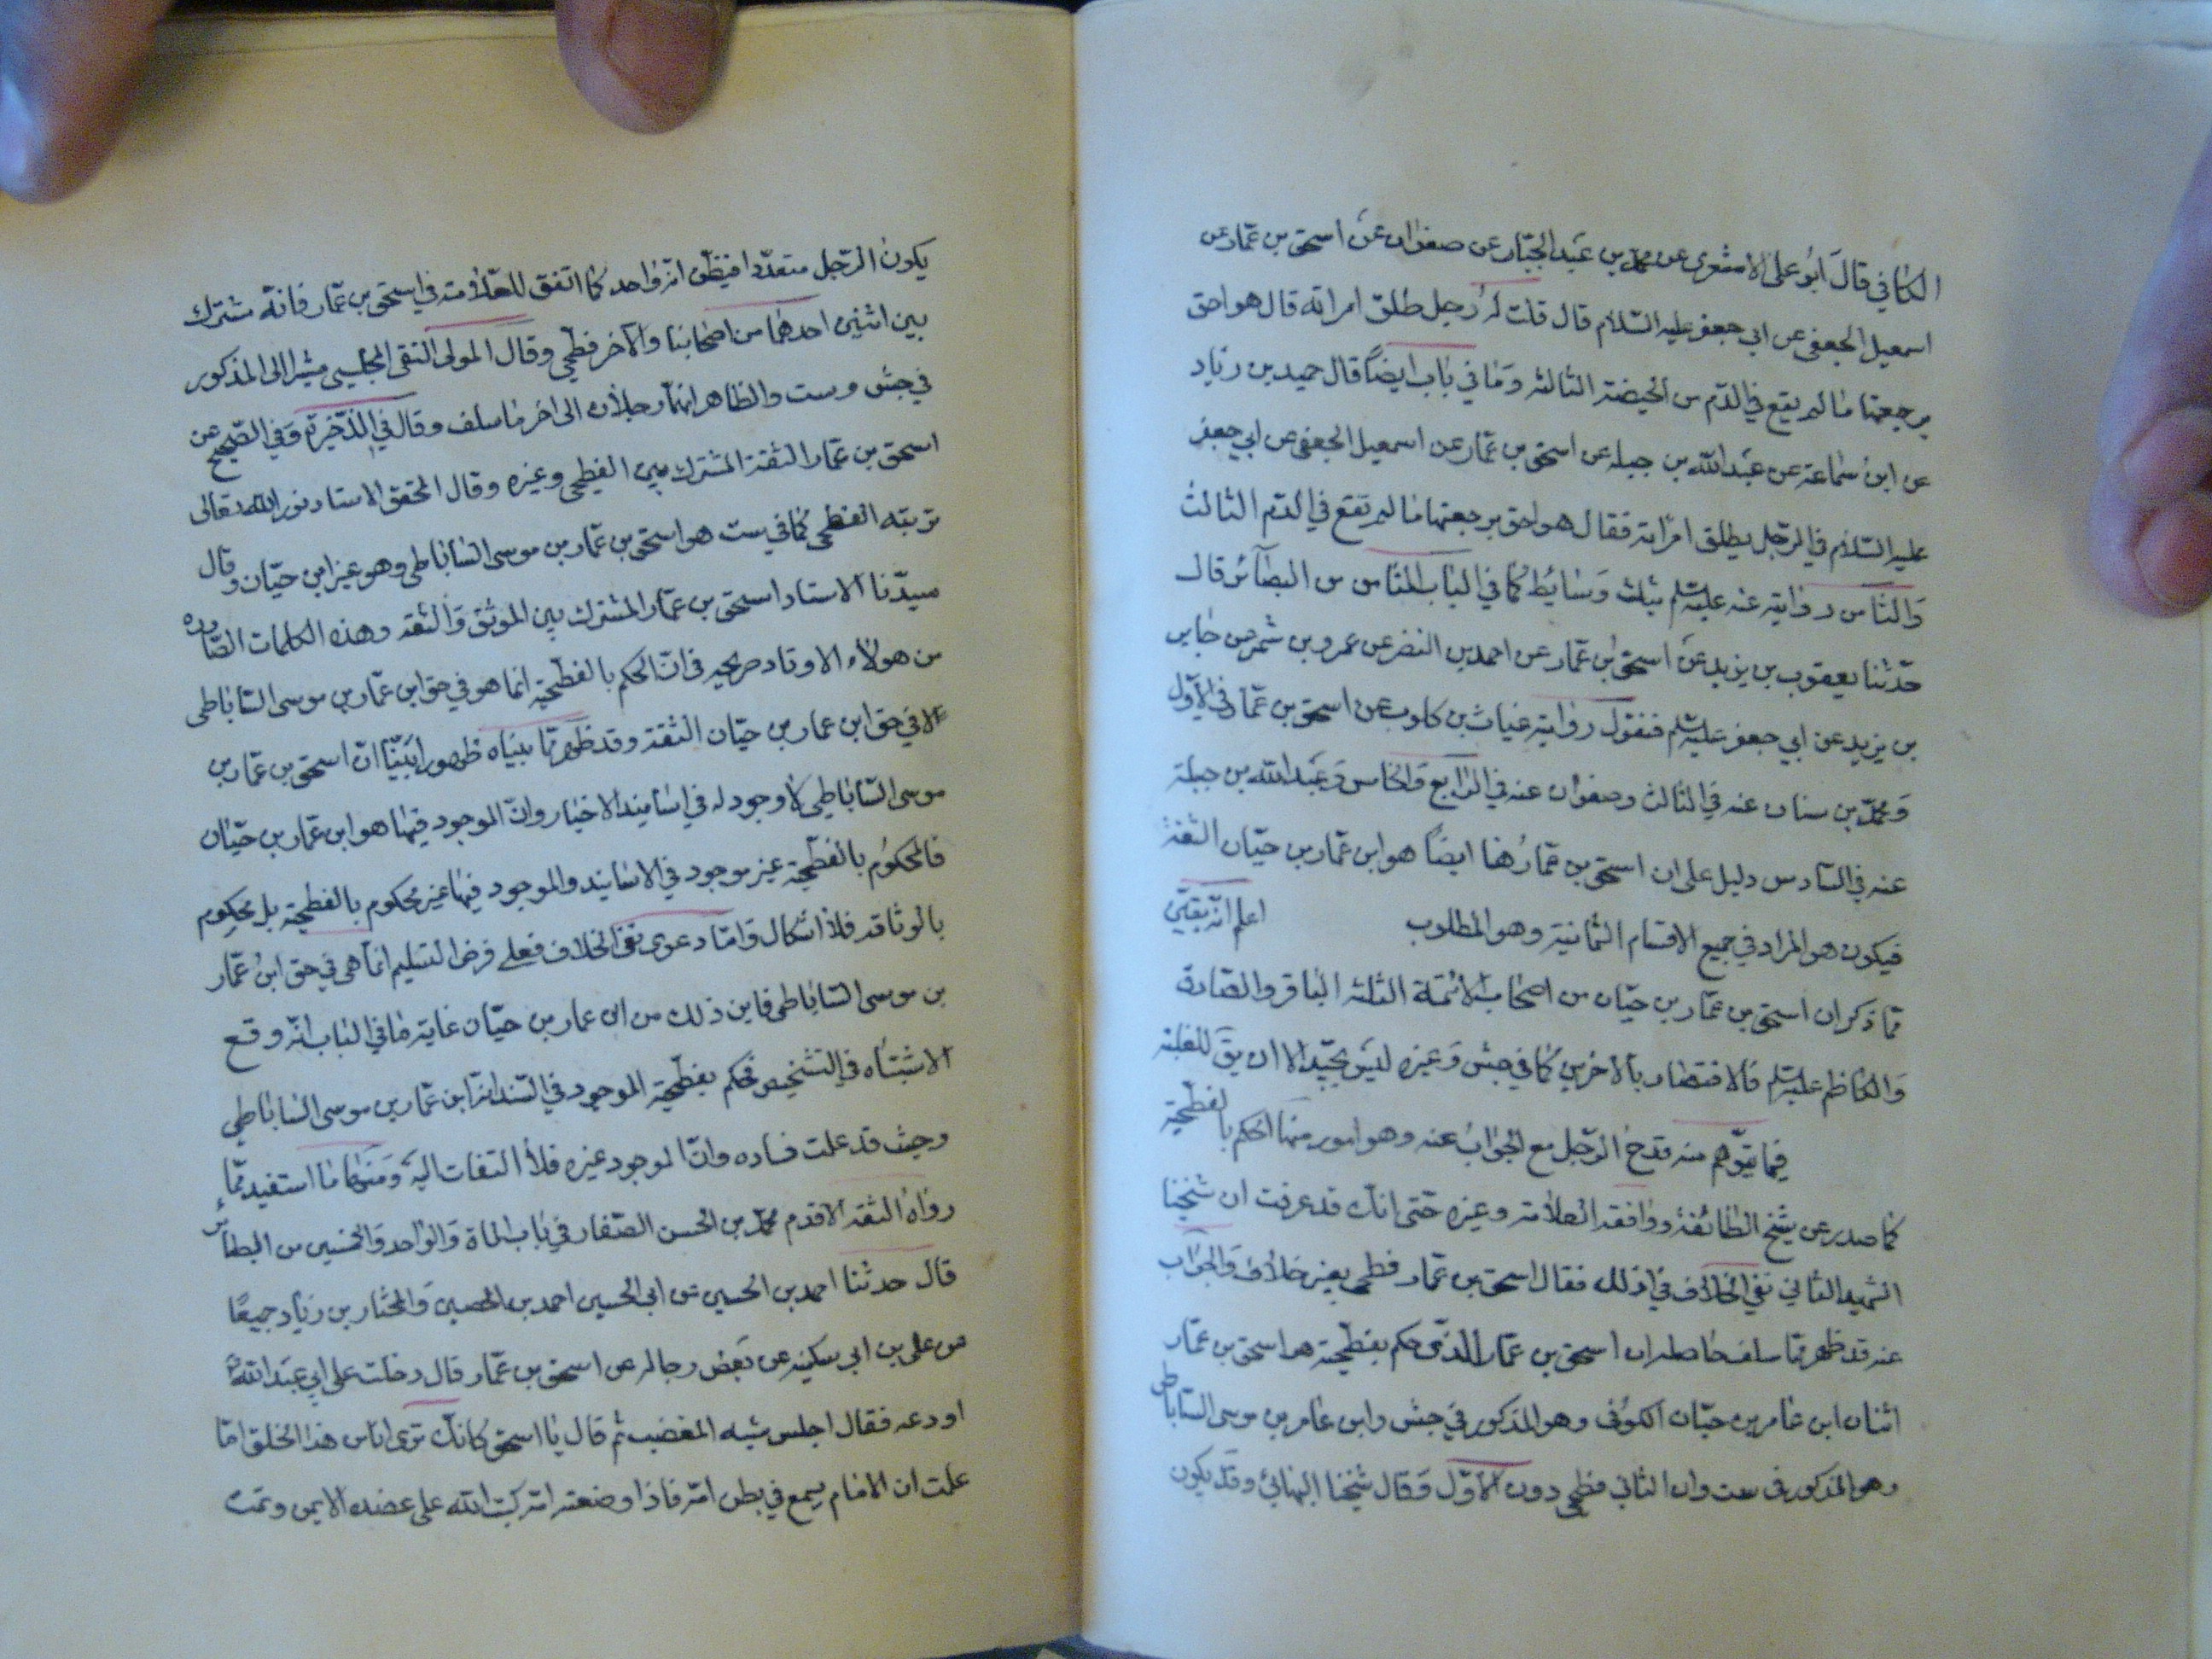 الكافي قال ابو علي الاشعري عن محمد بن عبد الجبار عن صفوان عن اسحق بن عمار عن
اسمعيل الجعفي عن ابي جعفر عليه السلام قال قلت له رجل طلق امراته قال هو احق
برجعتها ما لم يقع في الدم من الحيضة الثالثه وما في باب ايضا قال حميد بن زياد
عن ابن سماعة عن عبد الله بن جبله عن اسحق بن عمار عن اسمعيل الجعفي عن ابي جعفر
عليه السلام في الرجل يطلق امراته فقال هو احق برجعتها ما لم تقع في الدم الثالث
والثامن روايته عنه عليه السلم بثلث وسايط كما في الباب الثامن من البصائر قال
حدثنا يعقوب بن يزيد عن اسحق بن عمار عن احمد بن النضر عن عمرو بن شمر عن جابر
بن يزيد عن ابي جعفر عليه السلم فنقول رواية غياث بن كلوب عن اسحق بن عمار في الاول
ومحمد بن سنان عنه في الثالث وصفوان عنه في الرابع والخامس وعبد الله بن جبلة
عنه في السادس دليل على ان اسحق بن عمار هنا ايضا هو ابن عمار بن حيان الثقة
فيكون هو المراد في جميع الاقسام الثمانية وهو المطلوب اعلم انه تبين
مما ذكر ان اسحق بن عمار بن حيان من اصحاب الائمة الثلثه الباقر والصادق
والكاظم عليهم السلم فالاقتصار بالاخرين كما في جش وغيره ليس بجيد الا ان يق للغلبة
فيما يتوهم منه قدح الرجل مع الجواب عنه وهو امور منها الحكم بالفطحية
كما صدر عن شيخ الطائفة ووافقه العلامة وغيره حتى انك قد عرفت ان شيخنا
الشهيد الثاني نفى الخلاف في ذلك فقال اسحق بن عمار فطحي بغير خلاف والجواب
عنه قد ظهر مما سلف حاصله ان اسحق بن عمار الذي حكم بفطحيته هو اسحق بن عمار
اثنان ابن عامر بن حيان الكوفي وهو المذكور في جش وابن عامر بن موسى الساباطي
وهو المذكور في ست وان الثاني فطحي دون الاول وقال شيخنا البهائي وقد يكون
يكون الرجل متعددا فيظن انه واحد كما اتفق للعلامة في اسحق بن عمار فانه مشترك
بين اثنين احدهما من اصحابنا والاخر فطحي وقال المولى التقي المجلسي مشيرا الى المذكور
في جش وست والظاهر انهما رجلان الى اخر ما سلف وقال في الذخيرة وفي الصحيح عن
اسحق بن عمار الثقة المشترك بين الفطحي وغيره وقال المحقق الاستاد نور الله تعالى
تربته الفطحي كما في ست هو اسحق بن عمار بن موسى الساباطي وهو غير ابن حيان وقال
سيدنا الاستاد اسحق بن عمار المشترك بين الموثق والثقة وهذه الكلمات الصادره
من هولاء الاوتاد صريحه في ان الحكم بالفطحية انما هو في حق ابن عمار بن موسى الساباطي
لا في حق ابن عمار بن حيان الثقة وقد ظهر مما بيناه ظهورا بينا ان اسحق بن عمار بن
موسى الساباطي لا وجود له في اسانيد الاخبار وان الموجود فيها هو ابن عمار بن حيان
فالمحكوم بالفطحية غير موجود في الاسانيد والموجود فيها غير محكوم بالفطحية بل محكوم
بالوثاقة فلا اشكال واما دعوى نفي الخلاف فعلى فرض التسليم انما هي في حق ابن عمار
بن موسى الساباطي فاين ذلك من ابن عمار بن حيان غاية ما في الباب انه وقع
الاشتباه في التشخيص فحكم بفطحية الموجود في السند انه ابن عمار بن موسى الساباطي
وحيث قد علمت فساده وان الموجود غيره فلا التفات اليه ومنها ما استفيد مما
رواه الثقة الاقدم محمد بن الحسن الصفار في باب الماة والواحد والخمسين من البصائر
قال حدثنا احمد بن الحسين عن ابي الحسين احمد بن الحصين والمختار بن زياد جميعا
عن علي بن ابي سكينه عن بعض رجاله عن اسحق بن عمار قال دخلت على ابي عبد الله
اودعه فقال اجلس شبه المغضب ثم قال يا اسحق كانك ترى انا من هذا الخلق اما
علمت ان الامام يسمع في بطن امه فاذا وضعته امه كتب الله على عضده الايمن وتمت